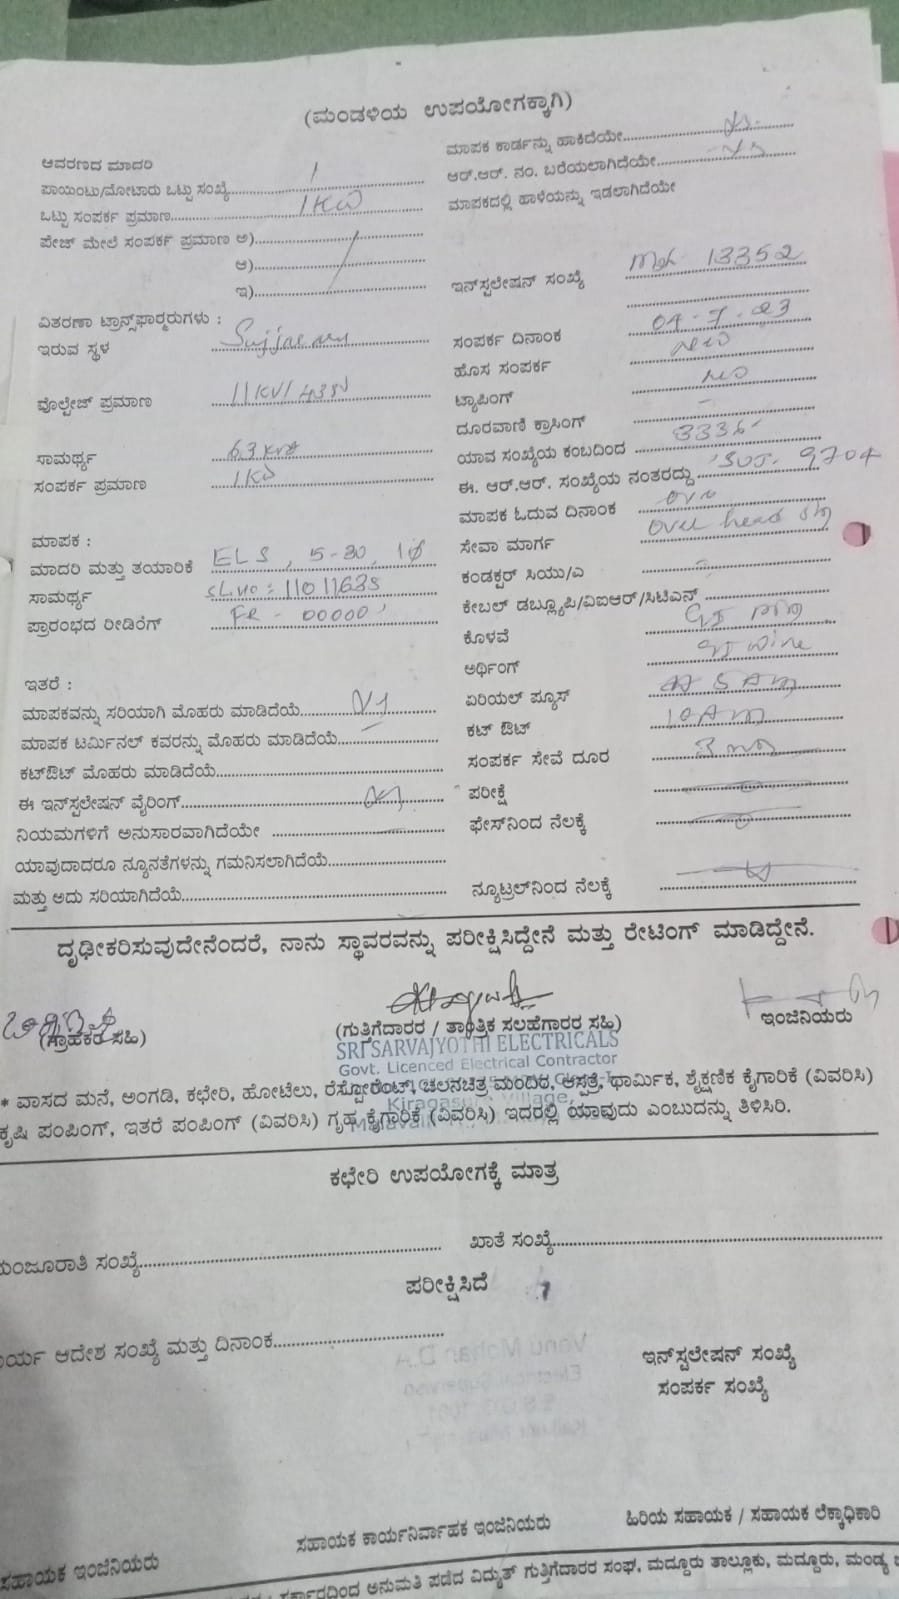 (ಮಂಡಳಿಯ ಉಪಯೋಗಕ್ಕಾಗಿ)
ಆವರಣದ ಮಾದರಿ
ಪಾಯಿಂಟು/ಮೋಟಾರು ಒಟ್ಟು ಸಂಖ್ಯೆ 1
ಒಟ್ಟು ಸಂಪರ್ಕ ಪ್ರಮಾಣ 1KW
ಪೇಜ್ ಮೇಲೆ ಸಂಪರ್ಕ ಪ್ರಮಾಣ ಅ)
ಆ)
ಇ)
ವಿತರಣಾ ಟ್ರಾನ್ಸ್‌ಫಾರ್ಮರುಗಳು :
ಇರುವ ಸ್ಥಳ
ವೊಲ್ಟೇಜ್ ಪ್ರಮಾಣ 11KV/433V
ಸಾಮರ್ಥ್ಯ 63 KVA
ಸಂಪರ್ಕ ಪ್ರಮಾಣ 1KW
ಮಾಪಕ :
ಮಾದರಿ ಮತ್ತು ತಯಾರಿಕೆ ELS, 5-30, 1φ
ಸಾಮರ್ಥ್ಯ SL.NO: 11011635
ಪ್ರಾರಂಭದ ರೀಡಿಂಗ್ FR - 00000
ಇತರೆ :
ಮಾಪಕವನ್ನು ಸರಿಯಾಗಿ ಮೊಹರು ಮಾಡಿದೆಯೆ
ಮಾಪಕ ಟರ್ಮಿನಲ್ ಕವರನ್ನು ಮೊಹರು ಮಾಡಿದೆಯೆ
ಕಟ್‌ಔಟ್ ಮೊಹರು ಮಾಡಿದೆಯೆ
ಈ ಇನ್‌ಸ್ಪಲೇಷನ್ ವೈರಿಂಗ್
ನಿಯಮಗಳಿಗೆ ಅನುಸಾರವಾಗಿದೆಯೇ
ಯಾವುದಾದರೂ ನ್ಯೂನತೆಗಳನ್ನು ಗಮನಿಸಲಾಗಿದೆಯೆ
ಮತ್ತು ಅದು ಸರಿಯಾಗಿದೆಯೆ
ಮಾಪಕ ಕಾರ್ಡನ್ನು ಹಾಕಿದೆಯೇ
ಆರ್.ಆರ್. ನಂ. ಬರೆಯಲಾಗಿದೆಯೇ
ಮಾಪಕದಲ್ಲಿ ಹಾಳೆಯನ್ನು ಇಡಲಾಗಿದೆಯೇ
ಇನ್‌ಸ್ಪಲೇಷನ್ ಸಂಖ್ಯೆ 13352
ಸಂಪರ್ಕ ದಿನಾಂಕ 04-7-23
ಹೊಸ ಸಂಪರ್ಕ new
ಟ್ಯಾಪಿಂಗ್ no
ದೂರವಾಣಿ ಕ್ರಾಸಿಂಗ್ -
ಯಾವ ಸಂಖ್ಯೆಯ ಕಂಬದಿಂದ
ಈ. ಆರ್.ಆರ್. ಸಂಖ್ಯೆಯ ನಂತರದ್ದು SUJ. 9704
ಮಾಪಕ ಓದುವ ದಿನಾಂಕ
ಸೇವಾ ಮಾರ್ಗ Over head
ಕಂಡಕ್ಟರ್ ಸಿಯು/ಎ
ಕೇಬಲ್ ಡಬ್ಲ್ಯೂಪಿ/ವಿಐಆರ್/ಸಿಟಿಎಸ್
ಕೊಳವೆ GI
ಅರ್ಥಿಂಗ್ GI wire
ಏರಿಯಲ್ ಫ್ಯೂಸ್ 5 Am
ಕಟ್ ಔಟ್ 10 Am
ಸಂಪರ್ಕ ಸೇವೆ ದೂರ
ಪರೀಕ್ಷೆ
ಫೇಸ್‌ನಿಂದ ನೆಲಕ್ಕೆ
ನ್ಯೂಟ್ರಲ್‌ನಿಂದ ನೆಲಕ್ಕೆ
ದೃಢೀಕರಿಸುವುದೇನೆಂದರೆ, ನಾನು ಸ್ಥಾವರವನ್ನು ಪರೀಕ್ಷಿಸಿದ್ದೇನೆ ಮತ್ತು ರೇಟಿಂಗ್ ಮಾಡಿದ್ದೇನೆ.
(ಗ್ರಾಹಕರ ಸಹಿ)
(ಗುತ್ತಿಗೆದಾರರ / ತಾಂತ್ರಿಕ ಸಲಹೆಗಾರರ ಸಹಿ)
ಇಂಜಿನಿಯರು
SRI SARVAJYOTHI ELECTRICALS
Govt. Licenced Electrical Contractor
* ವಾಸದ ಮನೆ, ಅಂಗಡಿ, ಕಛೇರಿ, ಹೋಟೆಲು, ರೆಸ್ಟೋರೆಂಟ್, ಚಲನಚಿತ್ರ ಮಂದಿರ, ಆಸ್ಪತ್ರೆ, ಧಾರ್ಮಿಕ, ಶೈಕ್ಷಣಿಕ ಕೈಗಾರಿಕೆ (ವಿವರಿಸಿ)
Village,
ಕೃಷಿ ಪಂಪಿಂಗ್, ಇತರೆ ಪಂಪಿಂಗ್ (ವಿವರಿಸಿ) ಗೃಹ ಕೈಗಾರಿಕೆ (ವಿವರಿಸಿ) ಇದರಲ್ಲಿ ಯಾವುದು ಎಂಬುದನ್ನು ತಿಳಿಸಿರಿ.
ಕಛೇರಿ ಉಪಯೋಗಕ್ಕೆ ಮಾತ್ರ
ಮಂಜೂರಾತಿ ಸಂಖ್ಯೆ
ಖಾತೆ ಸಂಖ್ಯೆ
ಪರೀಕ್ಷಿಸಿದೆ
ಆದೇಶ ಸಂಖ್ಯೆ ಮತ್ತು ದಿನಾಂಕ
ಇನ್‌ಸ್ಪಲೇಷನ್ ಸಂಖ್ಯೆ
ಸಂಪರ್ಕ ಸಂಖ್ಯೆ
ಸಹಾಯಕ ಇಂಜಿನಿಯರು
ಸಹಾಯಕ ಕಾರ್ಯನಿರ್ವಾಹಕ ಇಂಜಿನಿಯರು
ಹಿರಿಯ ಸಹಾಯಕ / ಸಹಾಯಕ ಲೆಕ್ಕಾಧಿಕಾರಿ
ಸರ್ಕಾರದಿಂದ ಅನುಮತಿ ಪಡೆದ ವಿದ್ಯುತ್ ಗುತ್ತಿಗೆದಾರರ ಸಂಘ, ಮದ್ದೂರು ತಾಲ್ಲೂಕು, ಮದ್ದೂರು, ಮಂಡ್ಯ